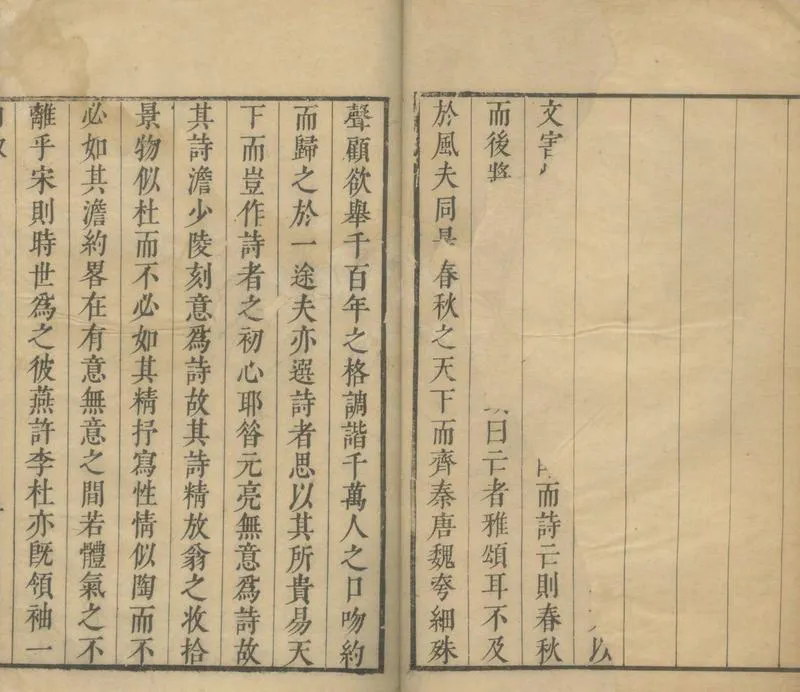 以
文字 而詩亡則春秋
而後 曰亡者雅頌耳不及
於風夫同是春秋之天下而齊秦唐魏夸細殊
聲顧欲舉千百年之格調諧千萬人之口吻約
而歸之於一途夫亦選詩者思以其所貴易天
下而豈作詩者之初心耶昝元亮無意爲詩故
其詩澹少陵刻意爲詩故其詩精放翁之收拾
景物似杜而不必如其精抒寫性情似陶而不
必如其澹約畧在有意無意之間若體氣之不
離乎宋則時世爲之彼燕許李杜亦旣領袖一